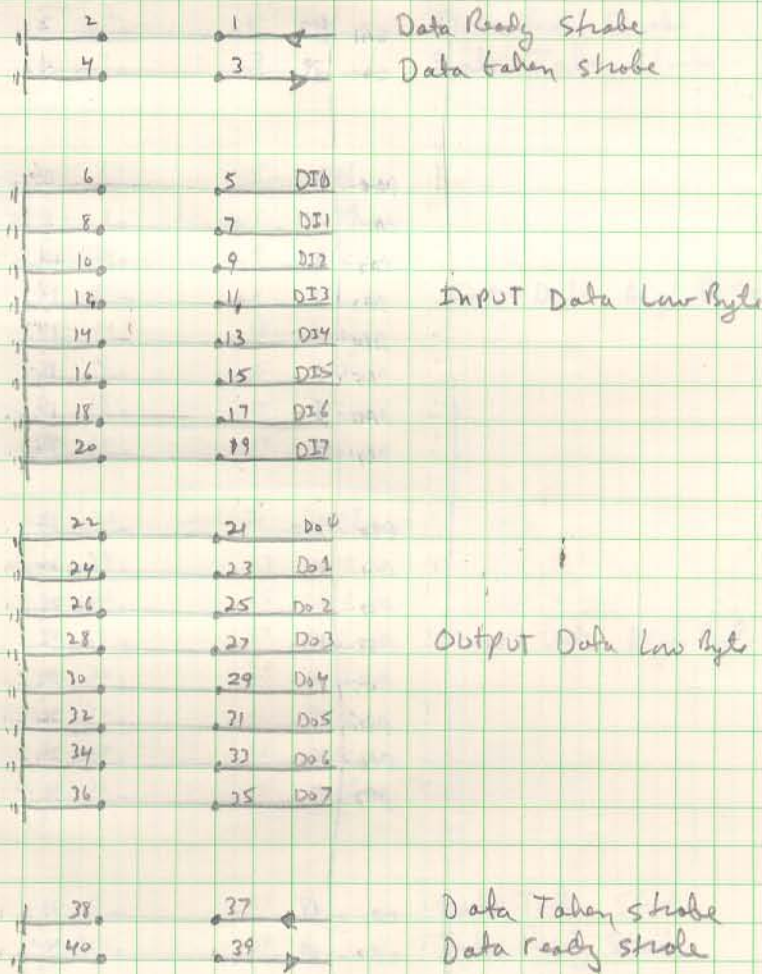 2 1 Data Ready strobe
4 3 Data taken strobe
6 5 DI0
8 7 DI1
10 9 DI2
12 11 DI3 INPUT Data Low Byte
14 13 DI4
16 15 DI5
18 17 DI6
20 19 DI7
22 21 Do0
24 23 Do1
26 25 Do2
28 27 Do3 OUTPUT Data Low Byte
30 29 Do4
32 31 Do5
34 33 Do6
36 35 Do7
38 37 Data Taken strobe
40 39 Data ready strobe